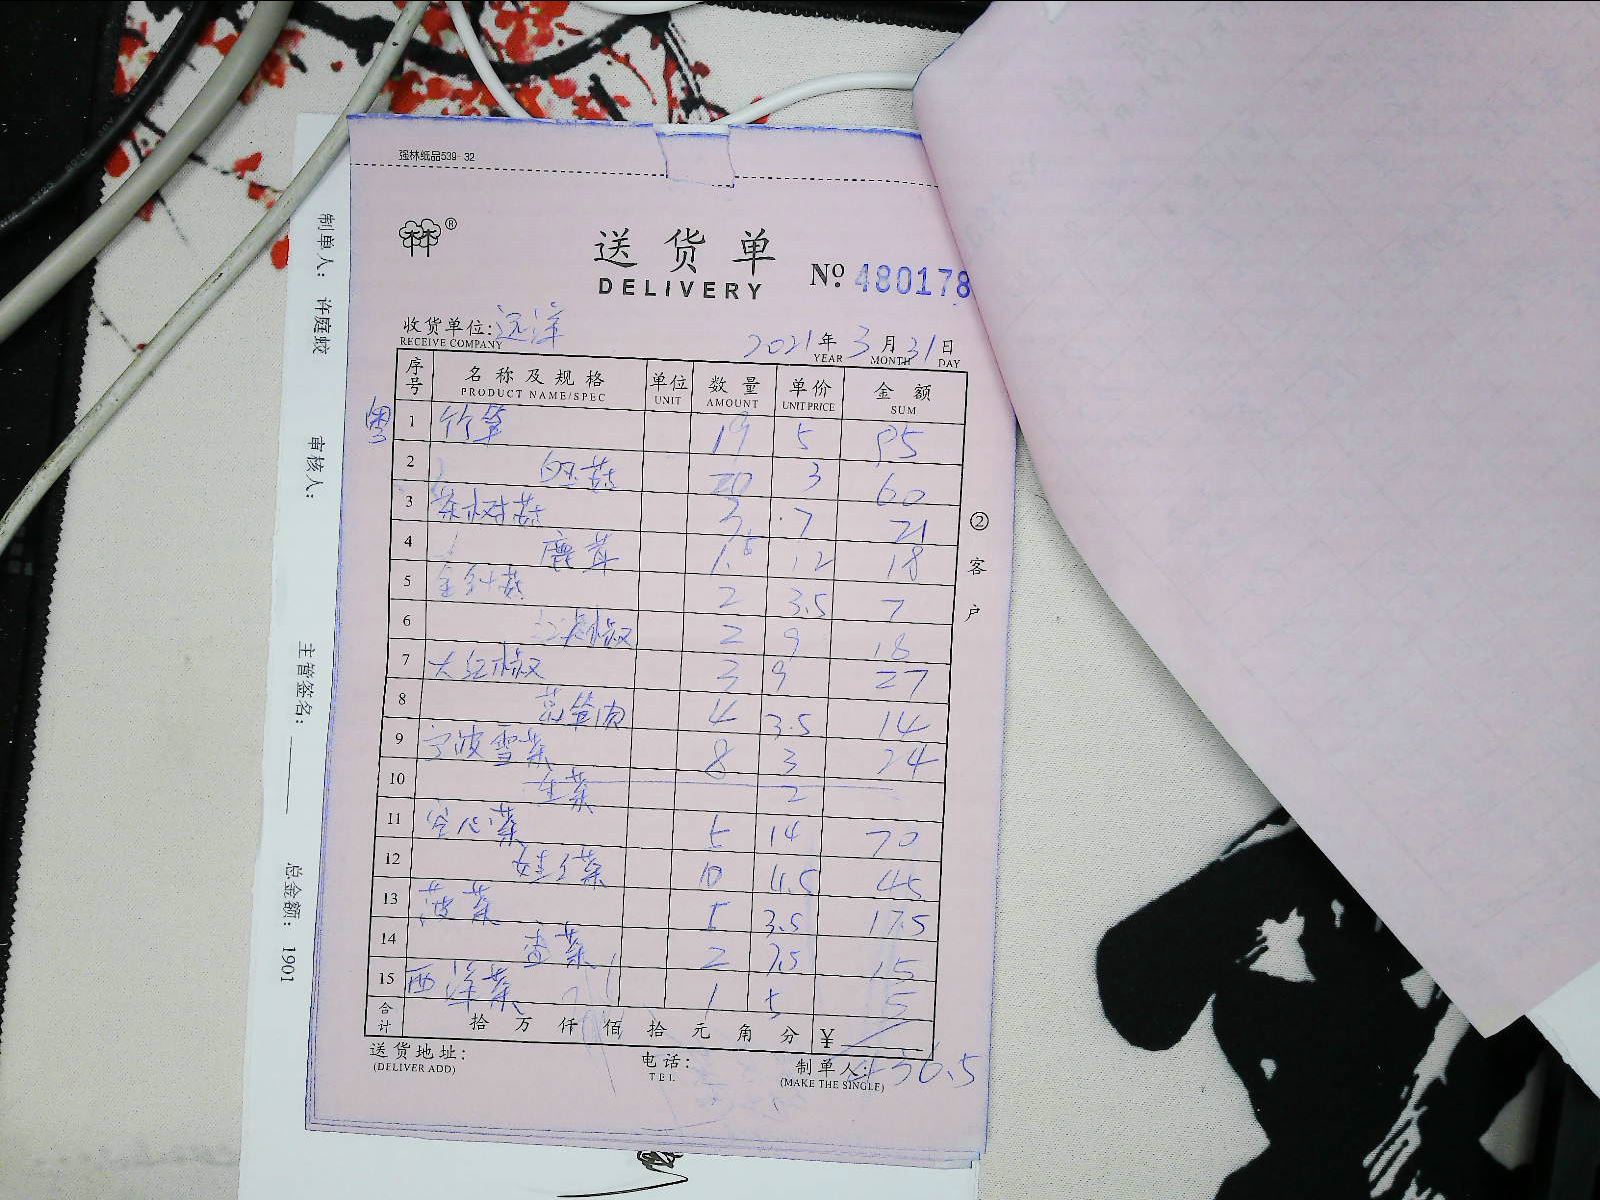 强林纸品539-32
®
送货单
DELIVERY
No. 480178
收货单位: 远洋
RECEIVE COMPANY
2021年3月31日
YEAR MONTH DAY
序号 名称及规格 单位 数量 单价 金额
PRODUCT NAME/SPEC UNIT AMOUNT UNIT PRICE SUM
粤
1 竹笋 19 5 95
2 白玉菇 20 3 60
3 茶树菇 3 7 21
4 鹿茸 1.5 12 18
5 金针菇 2 3.5 7
6 2 9 18
7 大红椒 3 9 27
8 4 3.5 14
9 宁波雪菜 8 3 24
10 生菜 2
11 空心菜 5 14 70
12 娃娃菜 10 4.5 45
13 菠菜 5 3.5 17.5
14 2 7.5 15
15 西洋菜 1 5 5
合计 拾万仟佰拾元角分 ¥
436.5
送货地址:
(DELIVER ADD)
电话:
TEL
制单人:
(MAKE THE SINGLE)
②客户
制单人: 许庭蛟
审核人:
主管签名:
总金额: 1901